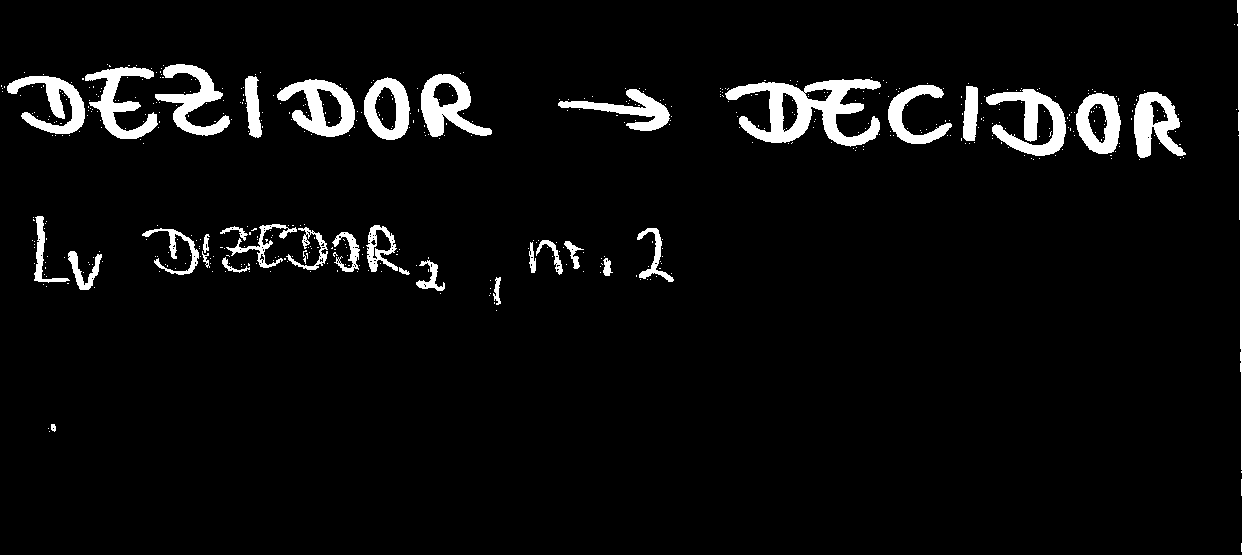 DEZIDOR → DECIDOR
Lv DIZEDOR₂, nr. 2